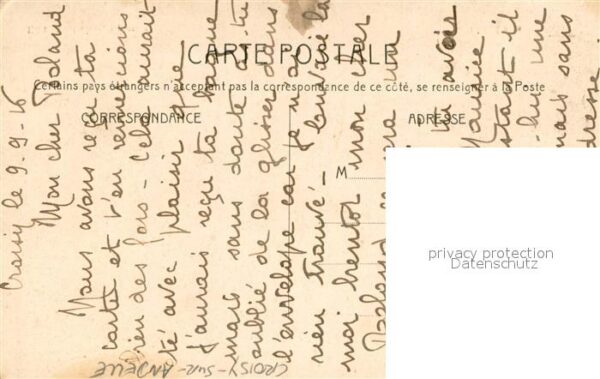 CARTE POSTALE
Certains pays étrangers n'acceptent pas la correspondance de ce côté, se renseigner à la Poste
CORRESPONDANCE
ADRESSE
M
Croisy le 9.9.16
Mon cher Roland
Nous avons reçu ta
carte et t'en remercions
rien des fois - Cela aurait
été avec plaisir que
j'aurais reçu ta
mais sans doute as-tu
oublié de la glisser dans
l'enveloppe car je n'ai
rien trouvé -
moi bientôt mon cher
Roland
tu avoir
Maurice
il
une
mais sans
adresse.
CROISY-SUR-ANDELLE
privacy protection
Datenschutz